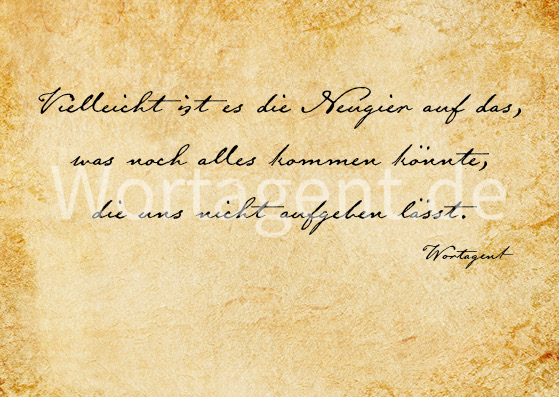 Vielleicht ist es die Neugier auf das,
was noch alles kommen könnte,
die uns nicht aufgeben lässt.
Wortagent
Wortagent.de